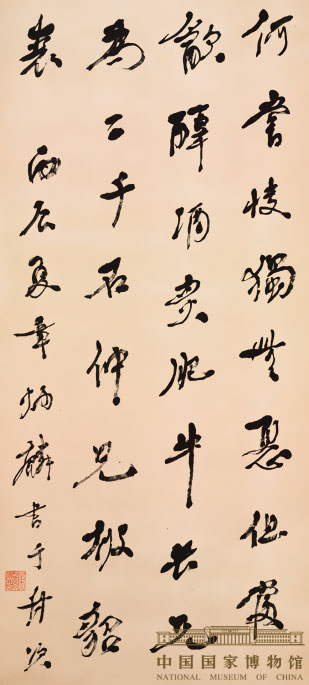 何嘗快獨無憂但當
飲醇酒炙肥牛長兄
為二千石仲兄被貂
裘 丙辰夏章炳麟書于
中国国家博物馆
NATIONAL MUSEUM OF CHINA